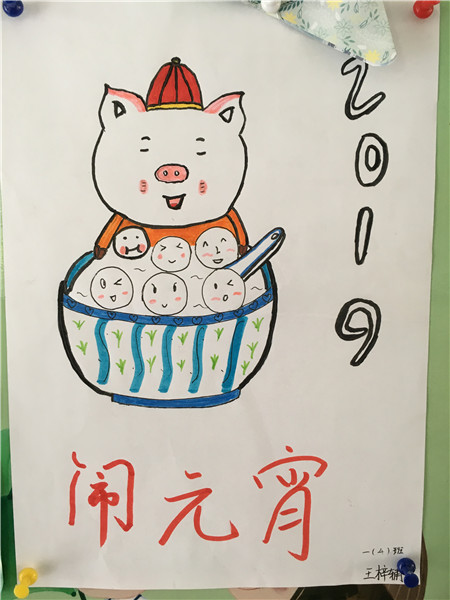 2019
闹元宵
一(4)班